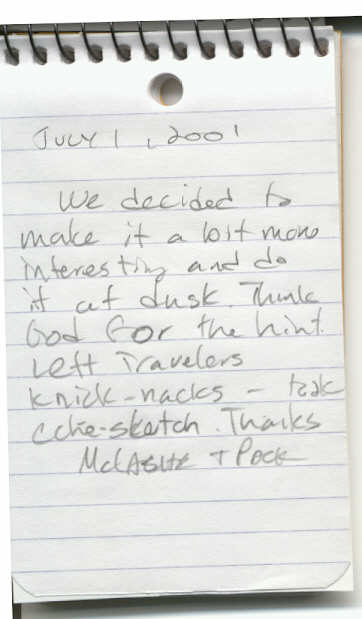 JULY 1, 2001
We decided to
make it a bit more
interesting and do
it at dusk. Think
God for the hint.
Left Travelers
knick-nacks - took
etche-sketch. Thanks
+ Pock